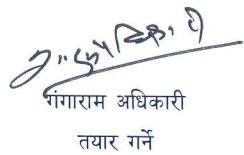 गंगाराम अधिकारी
तयार गर्ने